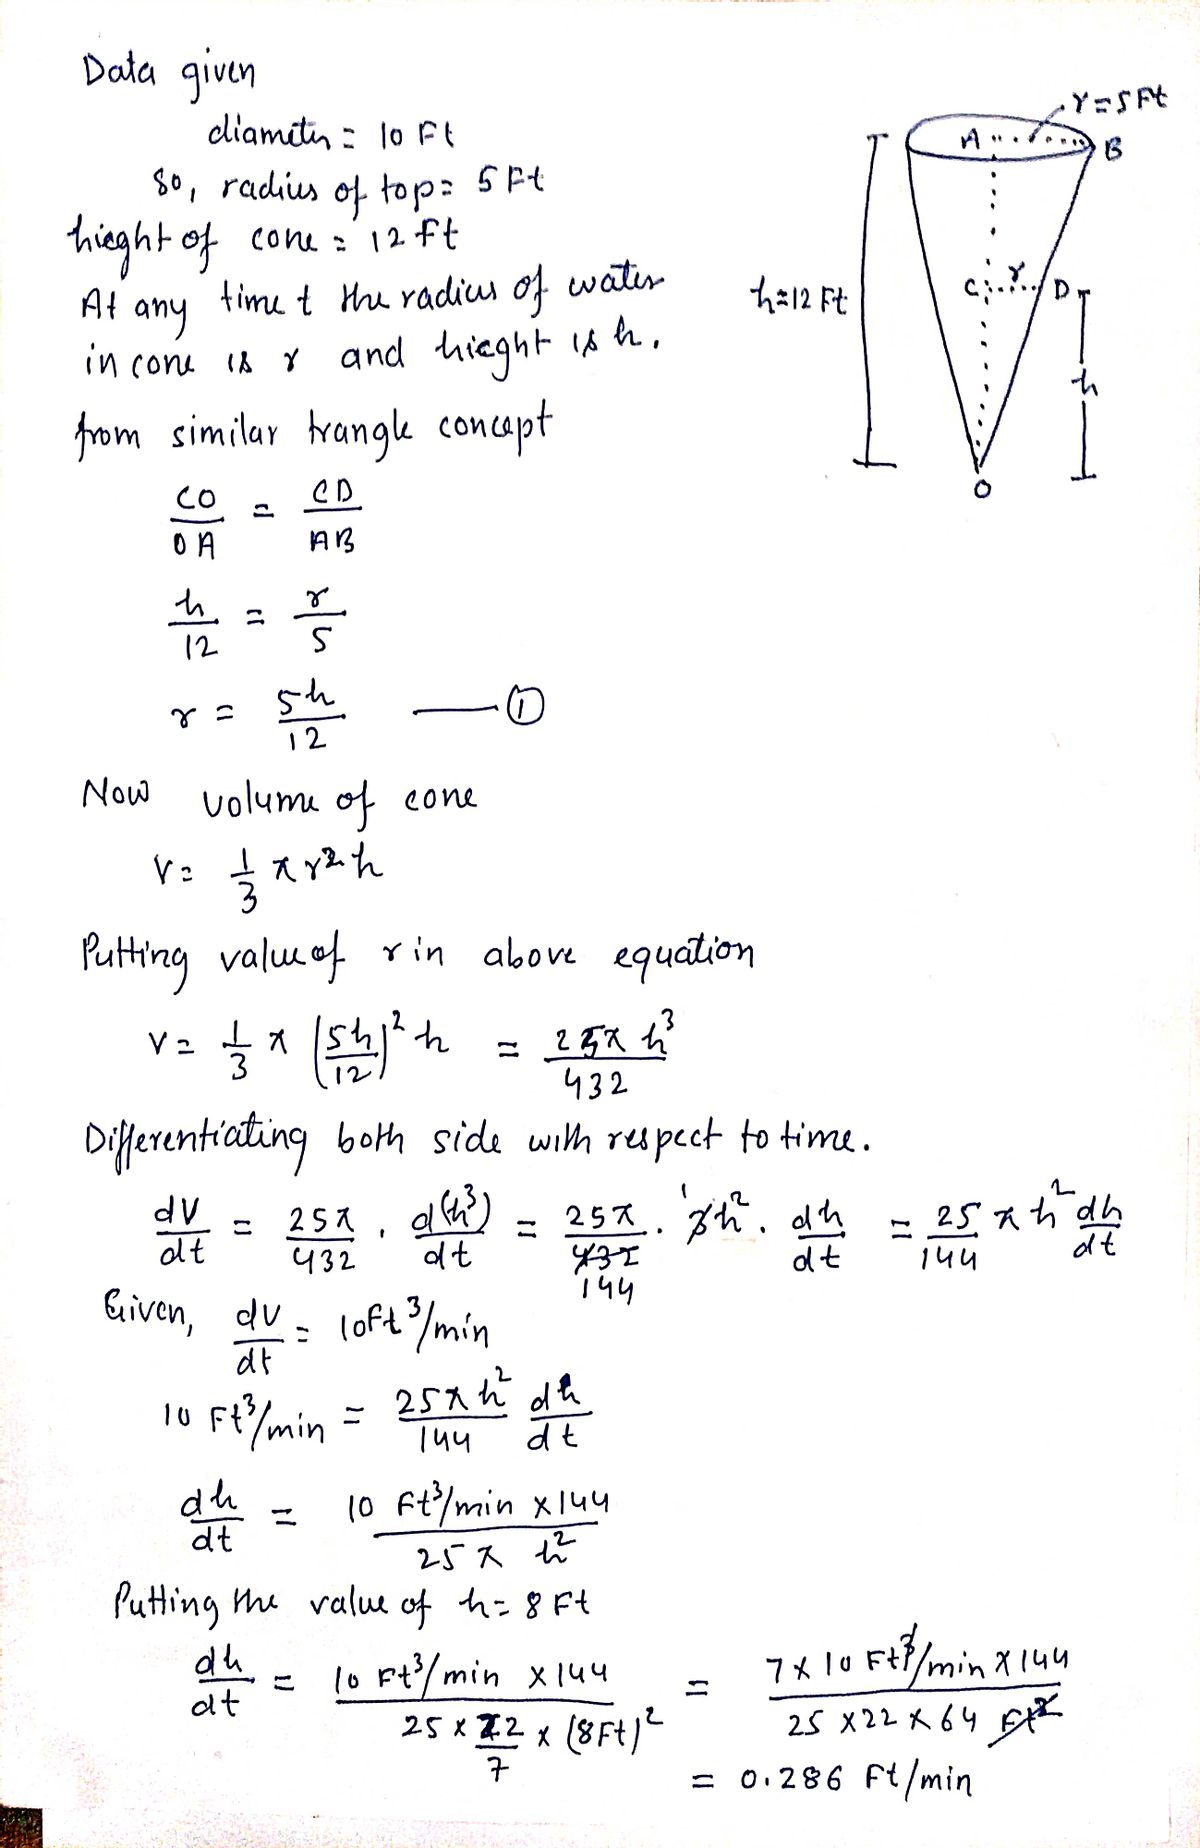 Data given
diameter = 10 Ft
So, radius of top = 5 Ft
hieght of cone = 12 ft
At any time t the radius of water
in cone is r and hieght is h.
r = 5 Ft
A B
h = 12 Ft
C r D
h
O
from similar trangle concept
CO/OA = CD/AB
h/12 = r/5
r = 5h/12 —— ①
Now volume of cone
V = 1/3 π r² h
Putting value of r in above equation
V = 1/3 π (5h/12)² h = 25π h³/432
Differentiating both side with respect to time.
dV/dt = 25π/432 . d(h³)/dt = 25π/432 144 . 3 1 h² . dh/dt = 25/144 π h² dh/dt
Given, dV/dt = 10 ft³/min
10 Ft³/min = 25π h²/144 dh/dt
dh/dt = 10 Ft³/min × 144 / 25 π h²
Putting the value of h = 8 Ft
dh/dt = 10 Ft³/min × 144 / 25 × 22/7 × (8Ft)² = 7 × 10 Ft³/min × 144 / 25 × 22 × 64 Ft²
= 0.286 Ft/min